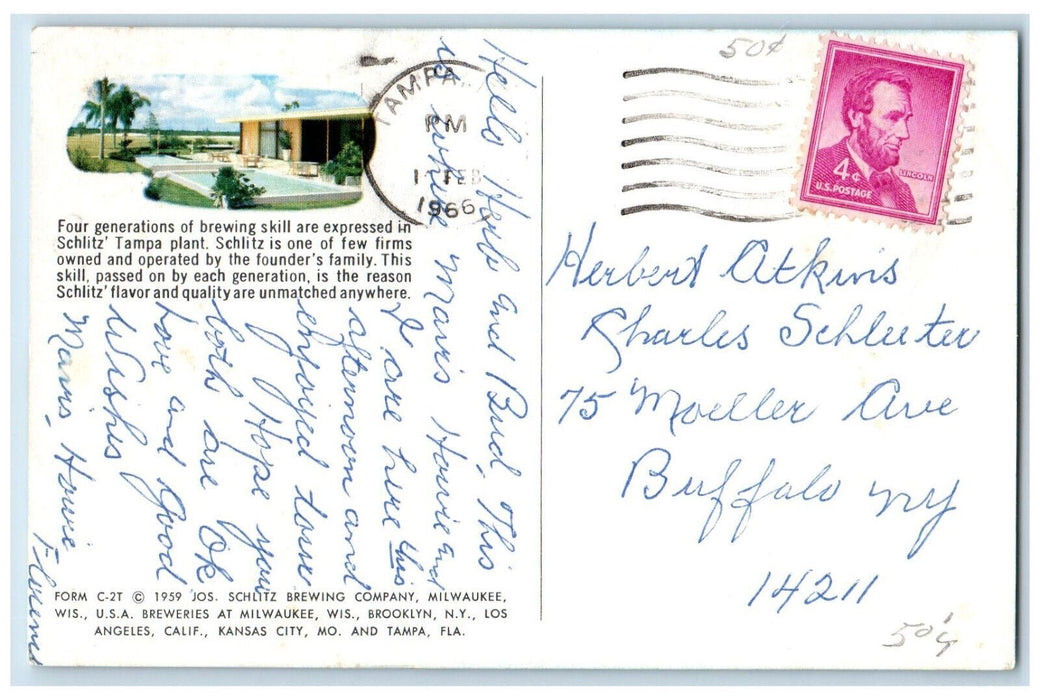 50¢
TAMPA
PM
FEB
1966
4¢
LINCOLN
U.S. POSTAGE
Four generations of brewing skill are expressed in
Schlitz' Tampa plant. Schlitz is one of few firms
owned and operated by the founder's family. This
skill, passed on by each generation, is the reason
Schlitz' flavor and quality are unmatched anywhere.
Hello Herb and Bud, This
is where Mavis Howie and
I are here this
afternoon and
enjoyed tour
Hope you
both are OK
Love and Good
Wishes
Mavis, Howie
Herbert Atkins
Charles Schleuter
75 Moeller Ave
Buffalo NY
14211
FORM C-2T © 1959 JOS. SCHLITZ BREWING COMPANY, MILWAUKEE,
WIS., U.S.A. BREWERIES AT MILWAUKEE, WIS., BROOKLYN, N.Y., LOS
ANGELES, CALIF., KANSAS CITY, MO. AND TAMPA, FLA.